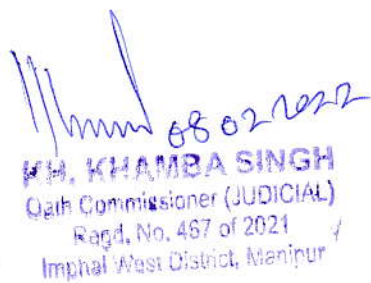 08 02 2022
KH. KHAMBA SINGH
Oath Commissioner (JUDICIAL)
Regd. No. 467 of 2021
Imphal West District, Manipur